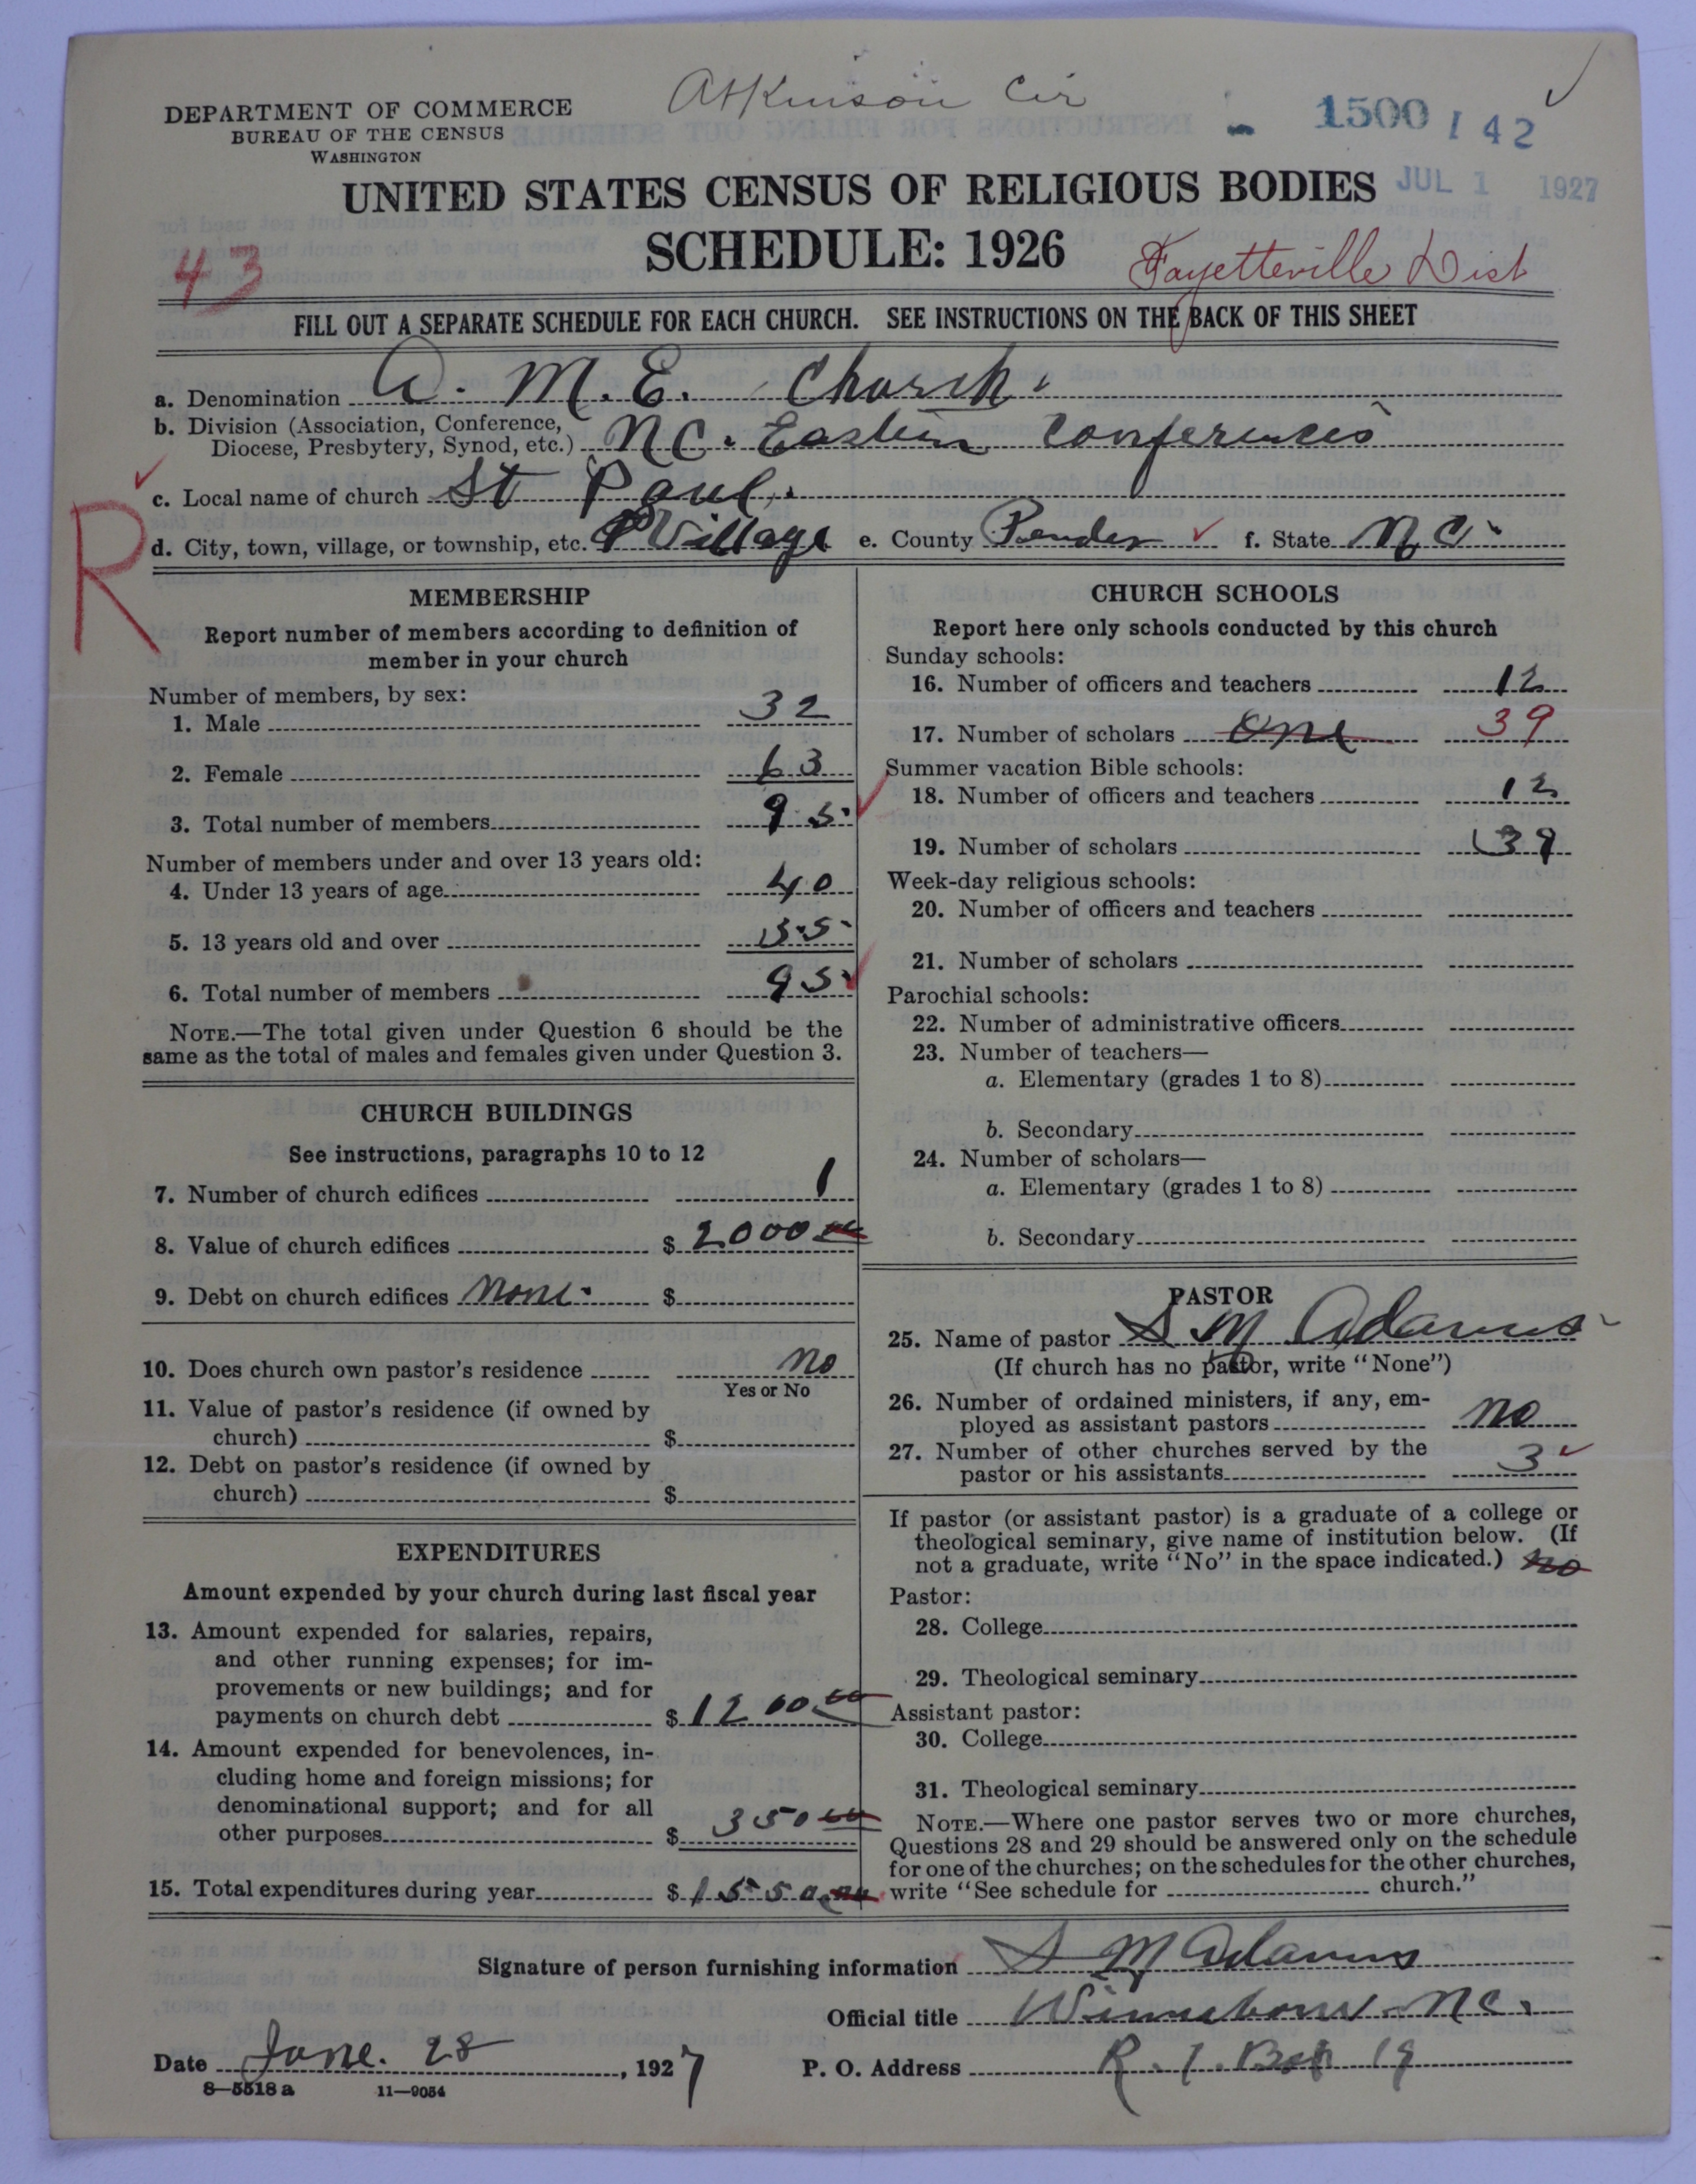 Atkinson Cir
DEPARTMENT OF COMMERCE
BUREAU OF THE CENSUS
WASHINGTON
1500 142
JUL 1 1927
UNITED STATES CENSUS OF RELIGIOUS BODIES
SCHEDULE: 1926
43
Fayetteville Dist
FILL OUT A SEPARATE SCHEDULE FOR EACH CHURCH. SEE INSTRUCTIONS ON THE BACK OF THIS SHEET
a. Denomination A. M. E. Church.
b. Division (Association, Conference,
Diocese, Presbytery, Synod, etc.) N C. Eastern Conferences
c. Local name of church St Paul.
R
d. City, town, village, or township, etc. Village e. County Pender f. State N C.
MEMBERSHIP
Report number of members according to definition of
member in your church
Number of members, by sex:
1. Male 32
2. Female 63
3. Total number of members 95
Number of members under and over 13 years old:
4. Under 13 years of age 40
5. 13 years old and over 55
6. Total number of members 95
NOTE.—The total given under Question 6 should be the
same as the total of males and females given under Question 3.
CHURCH BUILDINGS
See instructions, paragraphs 10 to 12
7. Number of church edifices 1
8. Value of church edifices $ 2000 00
9. Debt on church edifices None. $
10. Does church own pastor's residence no
Yes or No
11. Value of pastor's residence (if owned by
church) $
12. Debt on pastor's residence (if owned by
church) $
EXPENDITURES
Amount expended by your church during last fiscal year
13. Amount expended for salaries, repairs,
and other running expenses; for im-
provements or new buildings; and for
payments on church debt $ 1200 00
14. Amount expended for benevolences, in-
cluding home and foreign missions; for
denominational support; and for all
other purposes $ 350 00
15. Total expenditures during year $ 1550.00
CHURCH SCHOOLS
Report here only schools conducted by this church
Sunday schools:
16. Number of officers and teachers 12
17. Number of scholars one 39
Summer vacation Bible schools:
18. Number of officers and teachers 12
19. Number of scholars 39
Week-day religious schools:
20. Number of officers and teachers
21. Number of scholars
Parochial schools:
22. Number of administrative officers
23. Number of teachers—
a. Elementary (grades 1 to 8)
b. Secondary
24. Number of scholars—
a. Elementary (grades 1 to 8)
b. Secondary
PASTOR
25. Name of pastor S M Adams
(If church has no pastor, write "None")
26. Number of ordained ministers, if any, em-
ployed as assistant pastors no
27. Number of other churches served by the
pastor or his assistants 3
If pastor (or assistant pastor) is a graduate of a college or
theological seminary, give name of institution below. (If
not a graduate, write "No" in the space indicated.) no
Pastor:
28. College
29. Theological seminary
Assistant pastor:
30. College
31. Theological seminary
NOTE.—Where one pastor serves two or more churches,
Questions 28 and 29 should be answered only on the schedule
for one of the churches; on the schedules for the other churches,
write "See schedule for church."
Signature of person furnishing information S M Adams
Official title Winnabow N C.
Date June. 28, 1927 P. O. Address R. 1. Box 19
8—5518 a 11—9054